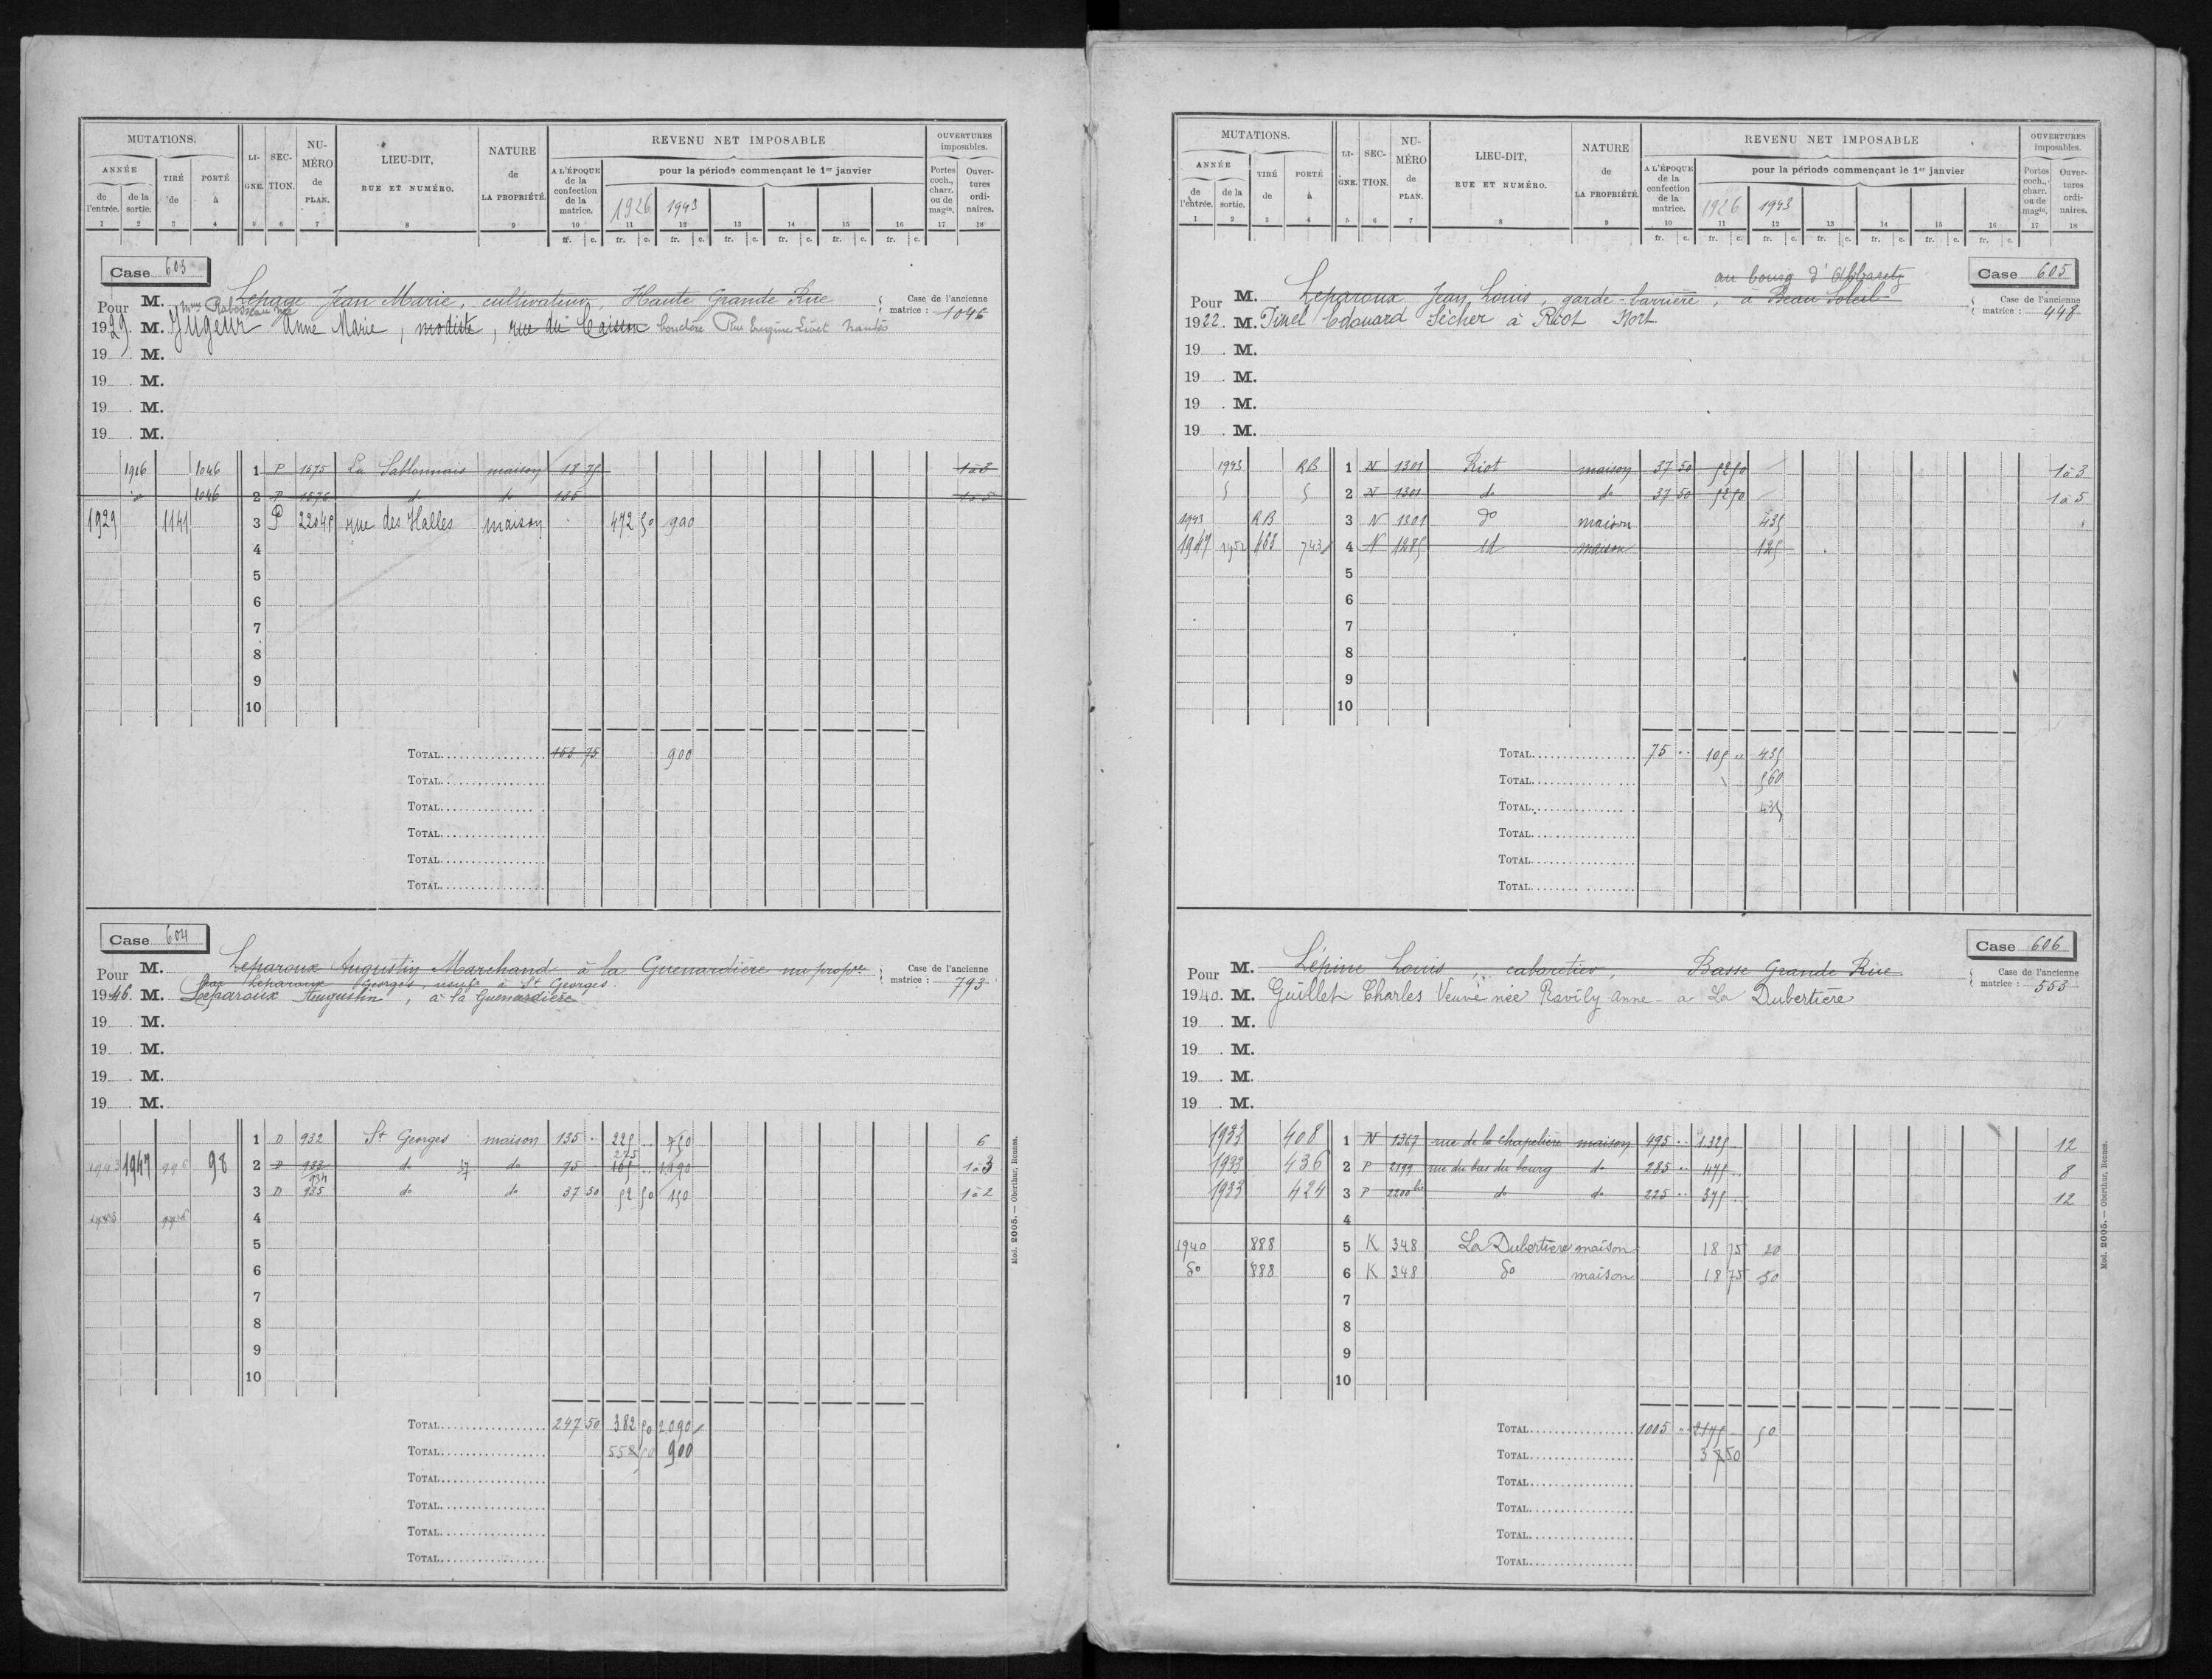 MUTATIONS.
ANNÉE
de l'entrée.
de la sortie.
TIRÉ de
PORTÉ à
LI-GNE.
SEC-TION.
NU-MÉRO de PLAN.
LIEU-DIT, RUE ET NUMÉRO.
NATURE de LA PROPRIÉTÉ.
REVENU NET IMPOSABLE
A L'ÉPOQUE de la confection de la matrice.
pour la période commençant le 1er janvier
1926 1943
OUVERTURES imposables.
Portes coch., charr. ou de magis.
Ouver-tures ordi-naires.
1 2 3 4 5 6 7 8 9 10 11 12 13 14 15 16 17 18
fr. c. fr. c. fr. c. fr. c. fr. c. fr. c. fr. c.
Case 603
Pour M. Lepage Jean Marie, cultivateur, Haute Grande Rue
Case de l'ancienne matrice : 1046
Mme née
1929. M. Jugeur Anne Marie, modiste, rue du Rue Eugène Livet Nantes
19 . M.
19 . M.
19 . M.
19 . M.
1916 1046 1 P 1675 La Sablonnais maison 18 75 1 à 3
do 1046 2 P 1676 do do 135 1 à 5
1929 1141 3 P 2204p rue des Halles maison 472 50 900
4
5
6
7
8
9
10
Total 153 75 900
Total
Total
Total
Total
Total
Case 604
Pour M. Leparoux Augustin Marchand à la Guenardiere nu propre
Case de l'ancienne matrice : 793
par Leparoux Georges, usuf. à St Georges
1946. M. Leparoux Augustin, à la Guenardiere
19 . M.
19 . M.
19 . M.
19 . M.
1 D 932 St Georges maison 135 .. 225 .. 750 6
275
1943 1947 98 2 D 933 do do 75 .. 105 .. 1.190 1 à 3
934
3 D 935 do do 37 50 52 50 150 1 à 2
4
5
6
7
8
9
10
Total 247 50 382 50 2.090
Total 552 50 900
Total
Total
Total
Total
Mod. 2005. — Oberthur, Rennes.
MUTATIONS.
ANNÉE
de l'entrée.
de la sortie.
TIRÉ de
PORTÉ à
LI-GNE.
SEC-TION.
NU-MÉRO de PLAN.
LIEU-DIT, RUE ET NUMÉRO.
NATURE de LA PROPRIÉTÉ.
REVENU NET IMPOSABLE
A L'ÉPOQUE de la confection de la matrice.
pour la période commençant le 1er janvier
1926 1943
OUVERTURES imposables.
Portes coch., charr. ou de magis.
Ouver-tures ordi-naires.
1 2 3 4 5 6 7 8 9 10 11 12 13 14 15 16 17 18
fr. c. fr. c. fr. c. fr. c. fr. c. fr. c. fr. c.
Case 605
au bourg d'Abbaretz
Pour M. Leparoux Jean Louis, garde-barrière, à Beau Soleil
Case de l'ancienne matrice : 448
1922. M. Tinel Edouard Sécher à Riot Nort
19 . M.
19 . M.
19 . M.
19 . M.
1943 RB 1 N 1301 Riot maison 37 50 52 50 1 à 3
2 N 1301 do do 37 50 52 50 1 à 5
1943 RB 3 N 1301 do maison 435
1947 1952 463 743 4 N 1285 id maison 125
5
6
7
8
9
10
Total 75 .. 105 .. 435
Total 560
Total 435
Total
Total
Total
Case 606
Pour M. Lépine Louis, cabaretier, Basse Grande Rue
Case de l'ancienne matrice : 553
1940. M. Guillet Charles Veuve née Ravily Anne - a La Dubertière
19 . M.
19 . M.
19 . M.
19 . M.
1933 408 1 N 1367 rue de la chapelière maison 495 .. 1.325 12
1933 436 2 P 2199 rue du bas du bourg do 285 .. 475 .. 8
1933 424 3 P 2200 bis do do 225 .. 375 .. 12
4
1940 888 5 K 348 La Dubertiere maison 18 75 20
do 888 6 K 348 do maison 18 75 30
7
8
9
10
Total 1005 .. 2175 50
Total 37 50
Total
Total
Total
Total
Mod. 2005. — Oberthur, Rennes.